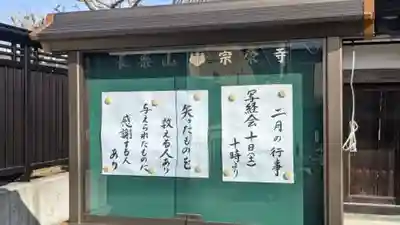 山 宗 寺
二月の行事
写経会 十日(土)
十時より
失ったものを
数える人あり
与えられたものに
感謝する人
あり